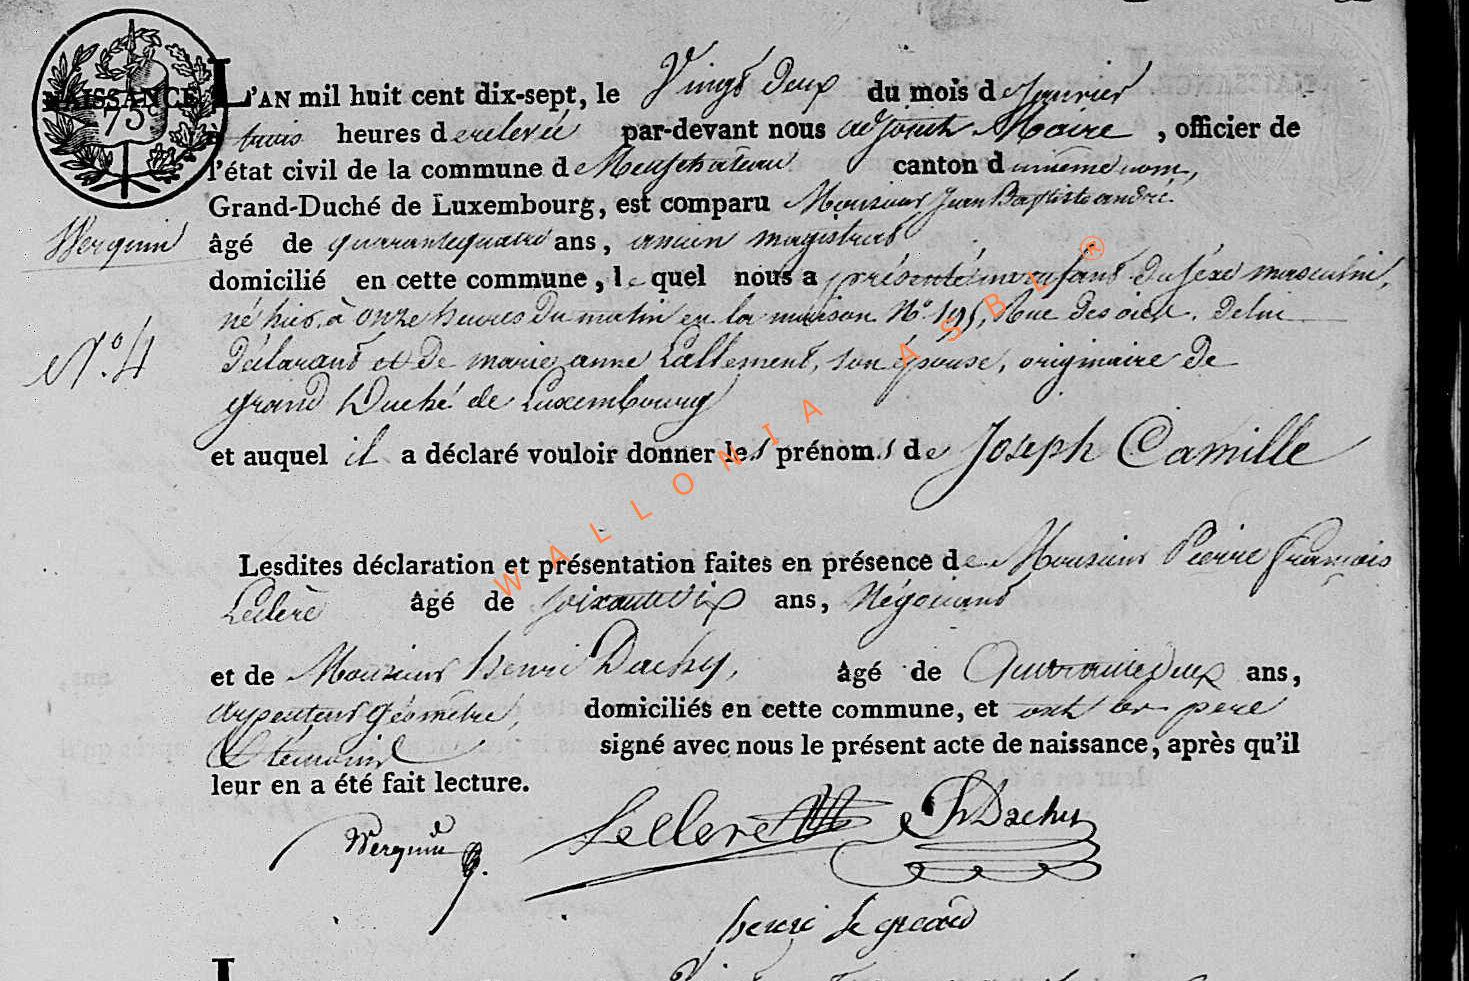 NAISSANCE
75 c
L'AN mil huit cent dix-sept, le Vingt deux du mois de Janvier
à trois heures de relevée par-devant nous adjoint Maire, officier de
l'état civil de la commune de Neufchateau canton du même nom,
Grand-Duché de Luxembourg, est comparu Monsieur Jean Baptiste andré
Werquin âgé de quarante quatre ans, ancien magistrat
domicilié en cette commune, lequel nous a présenté un enfant du sexe masculin,
né hier, à onze heures du matin en la maison N° 195, Rue des oies, de lui
N° 4 Déclarant et de marie anne Lallement, son épouse, originaire de
grand Duché de Luxembourg
et auquel il a déclaré vouloir donner les prénoms de Joseph Camille
Lesdites déclaration et présentation faites en présence de Monsieur Pierre François
Leclerc âgé de soixante six ans, Négociant
et de Monsieur henri Dachy, âgé de Quarante deux ans,
arpenteur géomètre, domiciliés en cette commune, et ont les père
et témoins signé avec nous le présent acte de naissance, après qu'il
leur en a été fait lecture.
Werquin Leclere h Dachy
henri Le grand
WALLONIA ASBL ®